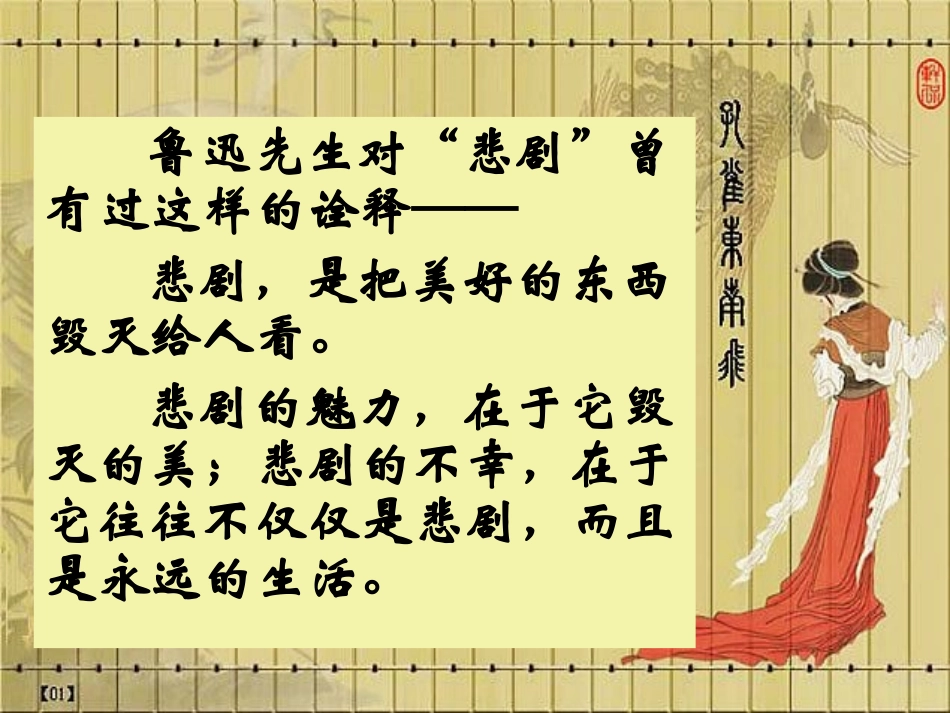 鲁迅先生对“悲剧”曾
有过这样的诠释——
悲剧，是把美好的东西
毁灭给人看。
悲剧的魅力，在于它毁
灭的美；悲剧的不幸，在于
它往往不仅仅是悲剧，而且
是永远的生活。
孔雀东南飞
【01】